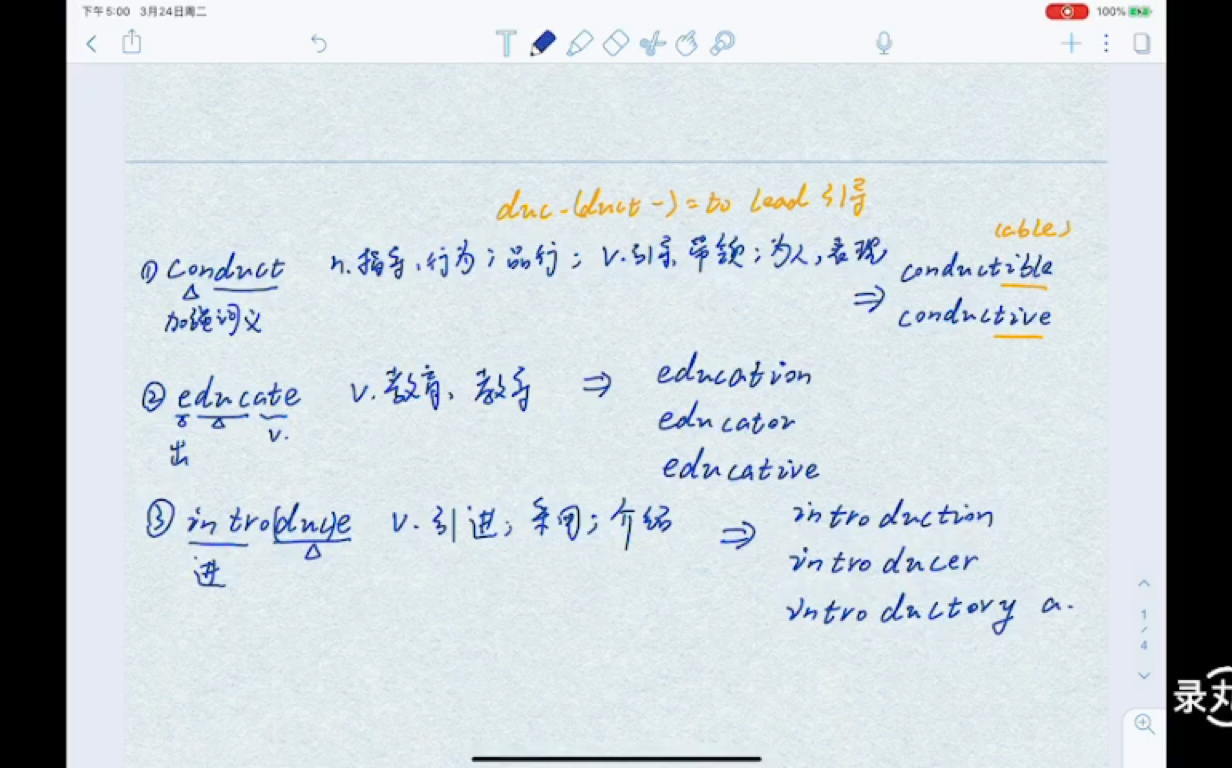 下午5:00 3月24日周二
100%
T
duc-(duct-)=to lead 引导
(able)
① conduct n.指导、行为；品行；v.引导,带领；为人,表现
⇒ conductible
加强词义
conductive
② educate v.教育、教导 ⇒ education
出 v.
educator
educative
③ introduce v.引进；采用；介绍 ⇒ introduction
进
introducer
introductory a.
1
/
4
录